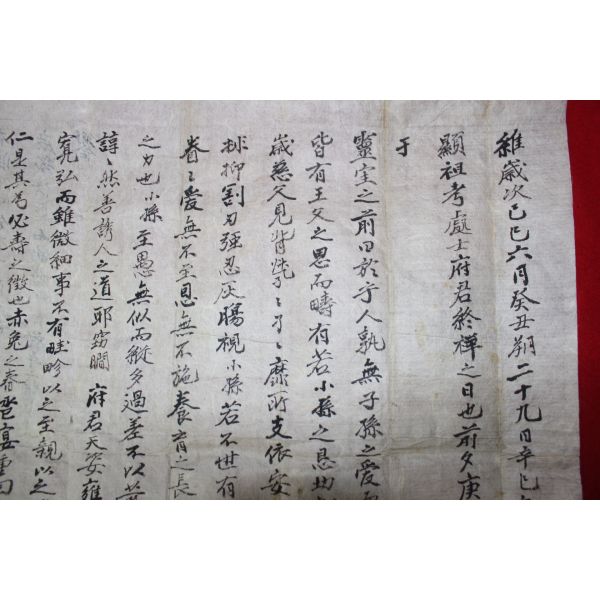 維歲次己巳六月癸丑朔二十九日辛巳
顯祖考處士府君終禫之日也前夕庚
于
靈筵之前曰於乎人孰無子孫之愛
皆有王父之恩而疇有若小孫之
歲慈父見背恍〻孑〻靡所支依安
抑割刃强忍灰腸視小孫若不世有
眷〻愛無不至恩無不施養育之長
之力也小孫至愚無似而縱多過差不以
諄〻然善誘人之道耶竊瞯府君天姿雍
寬弘而雖微細事不有畦畛以之至親以之
仁是其爲必壽之徵也赤兔之春